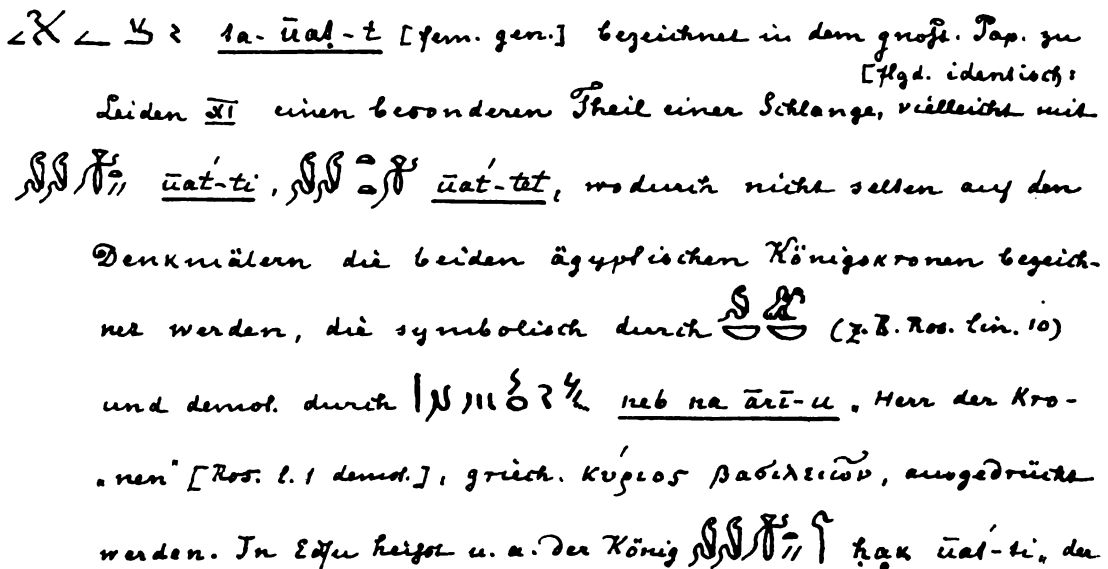 sa-ūat-t [fem. gen.] bezeichnet in dem gnost. Pap. zu
[flgd. identisch:
Leiden XI einen besonderen Theil einer Schlange, vielleicht mit
ūat́-ti, ūat́-tet, wodurch nicht selten auf den
Denkmälern die beiden ägyptischen Königskronen bezeich-
net werden, die symbolisch durch (z.B. Ros. lin. 10)
und demot. durch neb na ārī-u „Herr der Kro-
„nen“ [Ros. l. 1 demot.], griech. κύριος βασιλειῶν, ausgedrückt
werden. In Edfu heisst u. a. der König ḥaḳ ūat́-ti „der